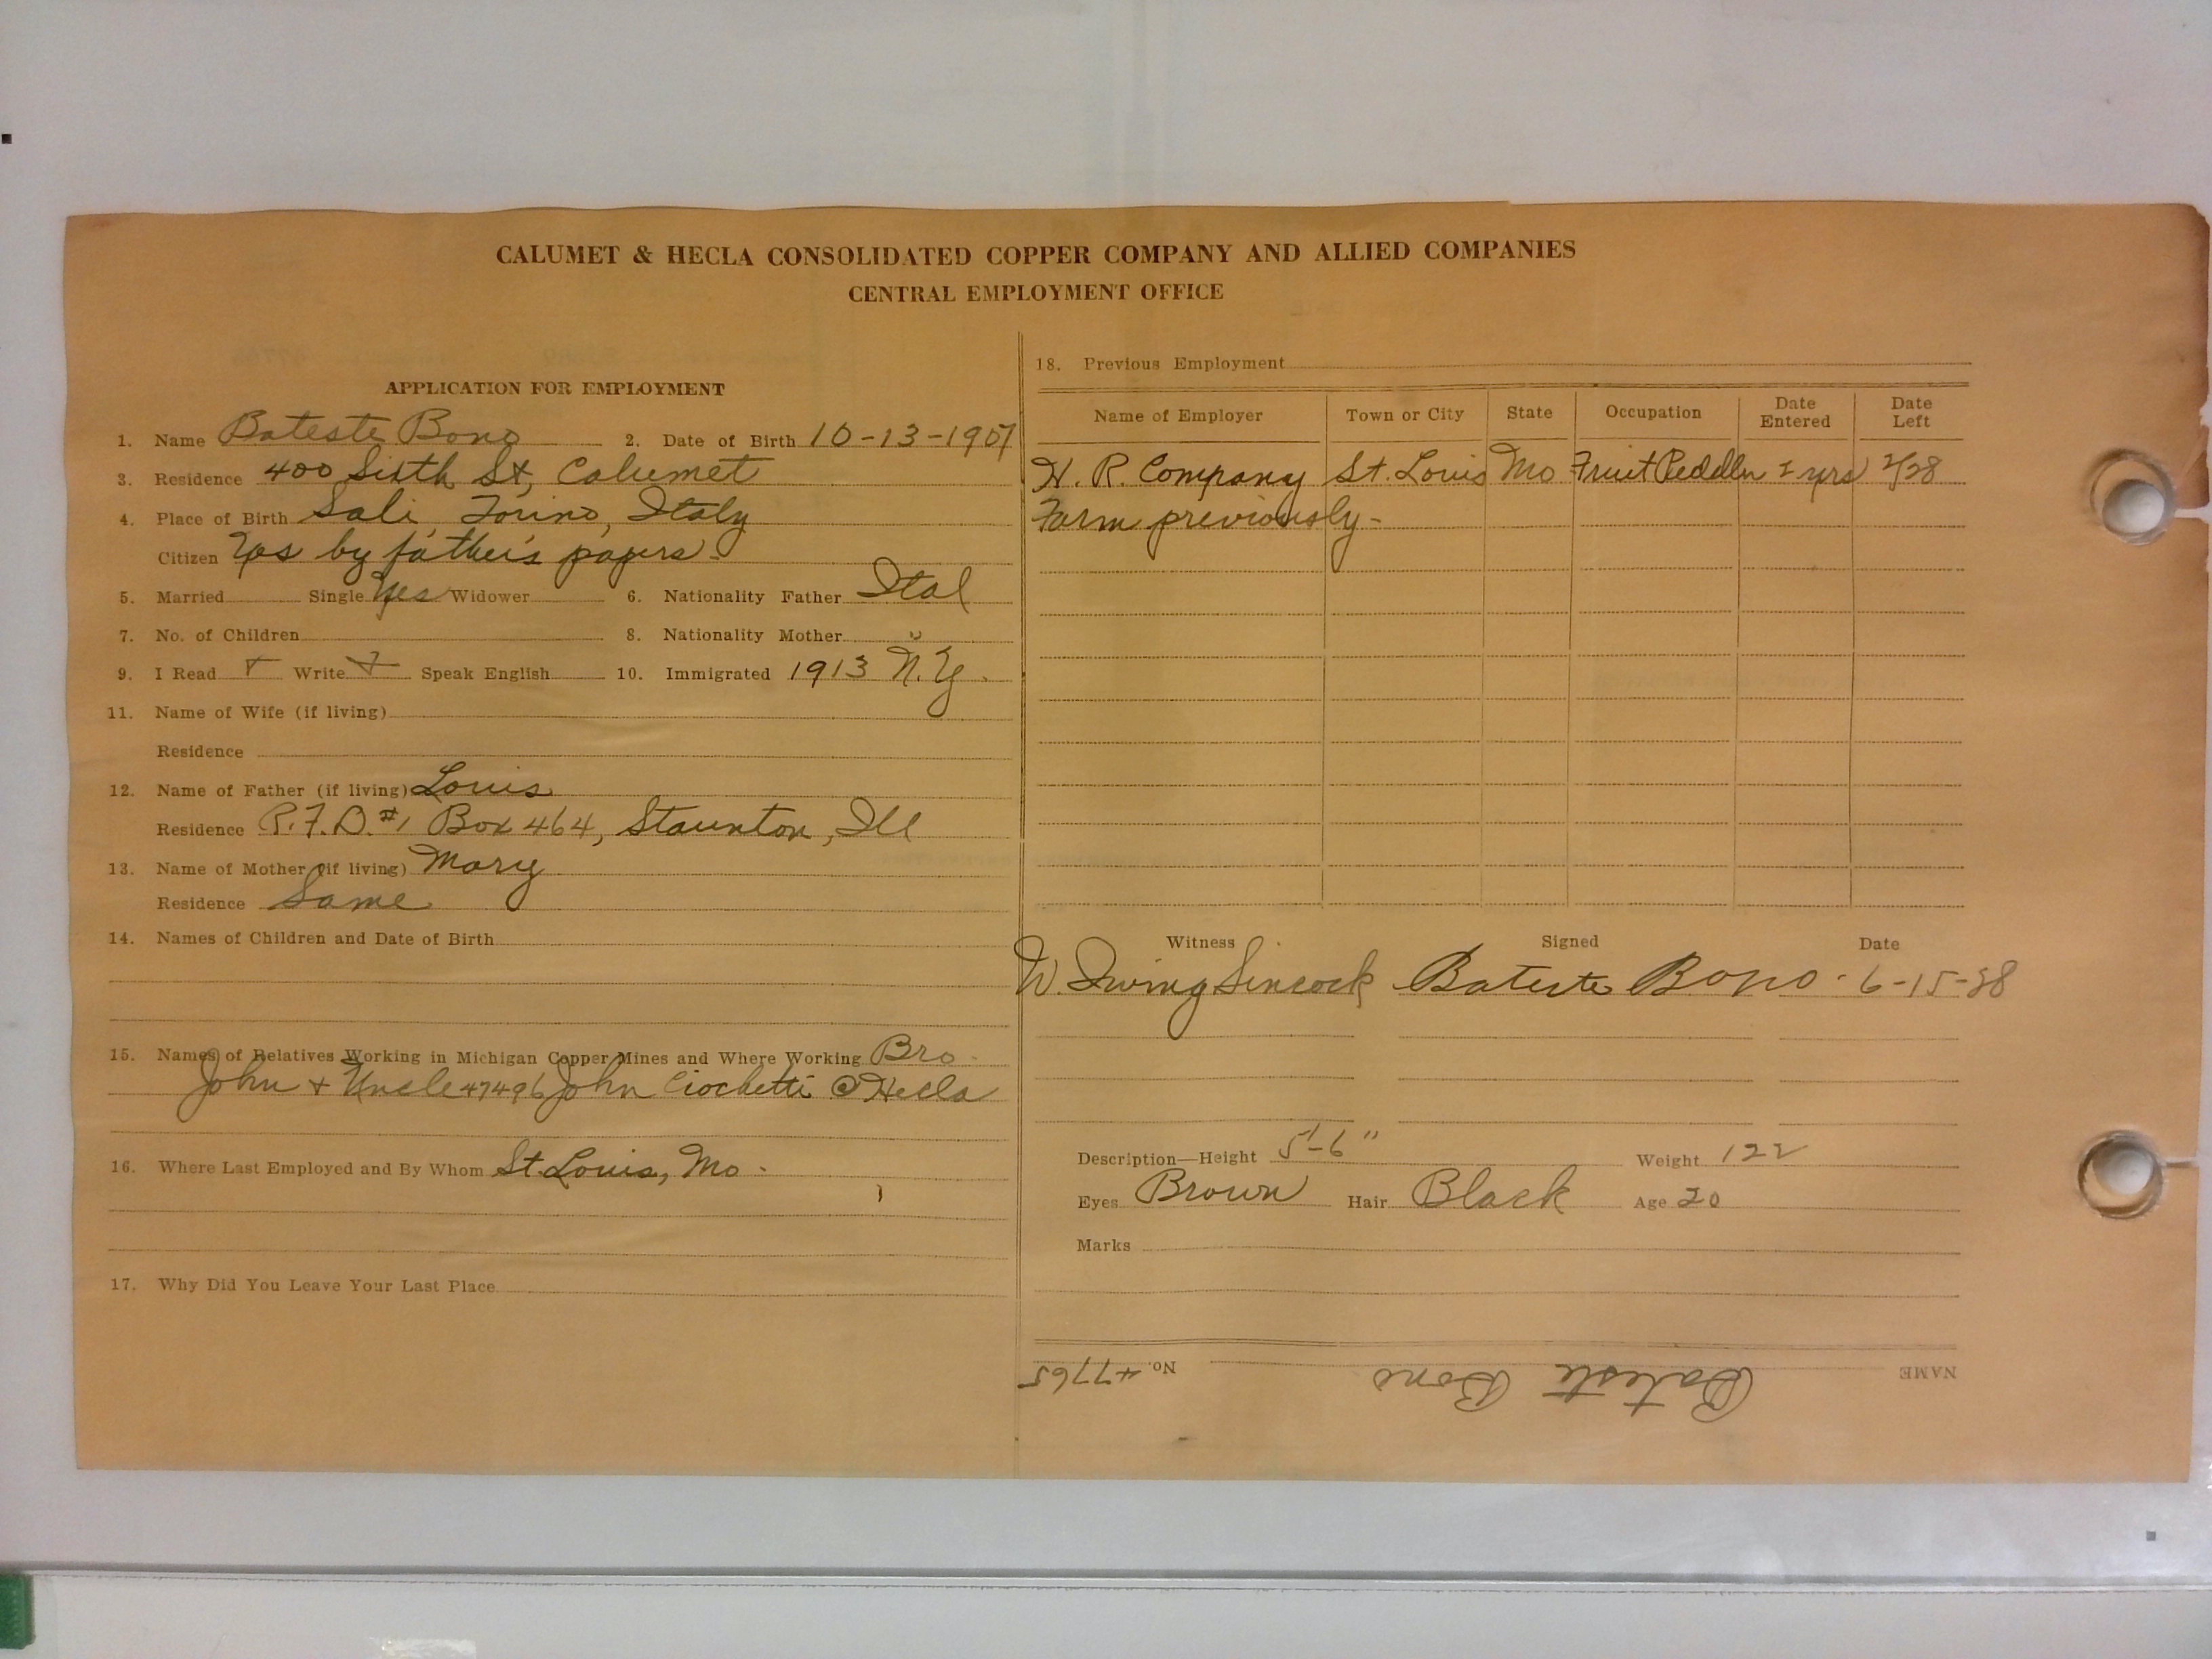 CALUMET & HECLA CONSOLIDATED COPPER COMPANY AND ALLIED COMPANIES
CENTRAL EMPLOYMENT OFFICE
APPLICATION FOR EMPLOYMENT
1. Name Bateste Bono 2. Date of Birth 10-13-1907
3. Residence 400 Sixth St, Calumet
4. Place of Birth Sali, Torino, Italy
Citizen Yes by father's papers
5. Married Single Yes Widower 6. Nationality Father Ital
7. No. of Children 8. Nationality Mother "
9. I Read Write Speak English 10. Immigrated 1913 N.Y.
11. Name of Wife (if living)
Residence
12. Name of Father (if living) Louis
Residence R.F.D. #1 Box 464, Staunton, Ill
13. Name of Mother (if living) Mary
Residence Same
14. Names of Children and Date of Birth
15. Names of Relatives Working in Michigan Copper Mines and Where Working Bro.
John + Uncle 47496 John Ciochetti @ Hecla
16. Where Last Employed and By Whom St. Louis, Mo.
17. Why Did You Leave Your Last Place
18. Previous Employment
Name of Employer Town or City State Occupation Date Entered Date Left
H. R. Company St. Louis Mo Fruit Peddler yrs /28
Farm previously-
Witness Signed Date
W. Irving Sincock Bateste Bono. 6-15-28
Description—Height 5'-6" Weight 122
Eyes Brown Hair Black Age 20
Marks
NAME Bateste Bono No. 47765